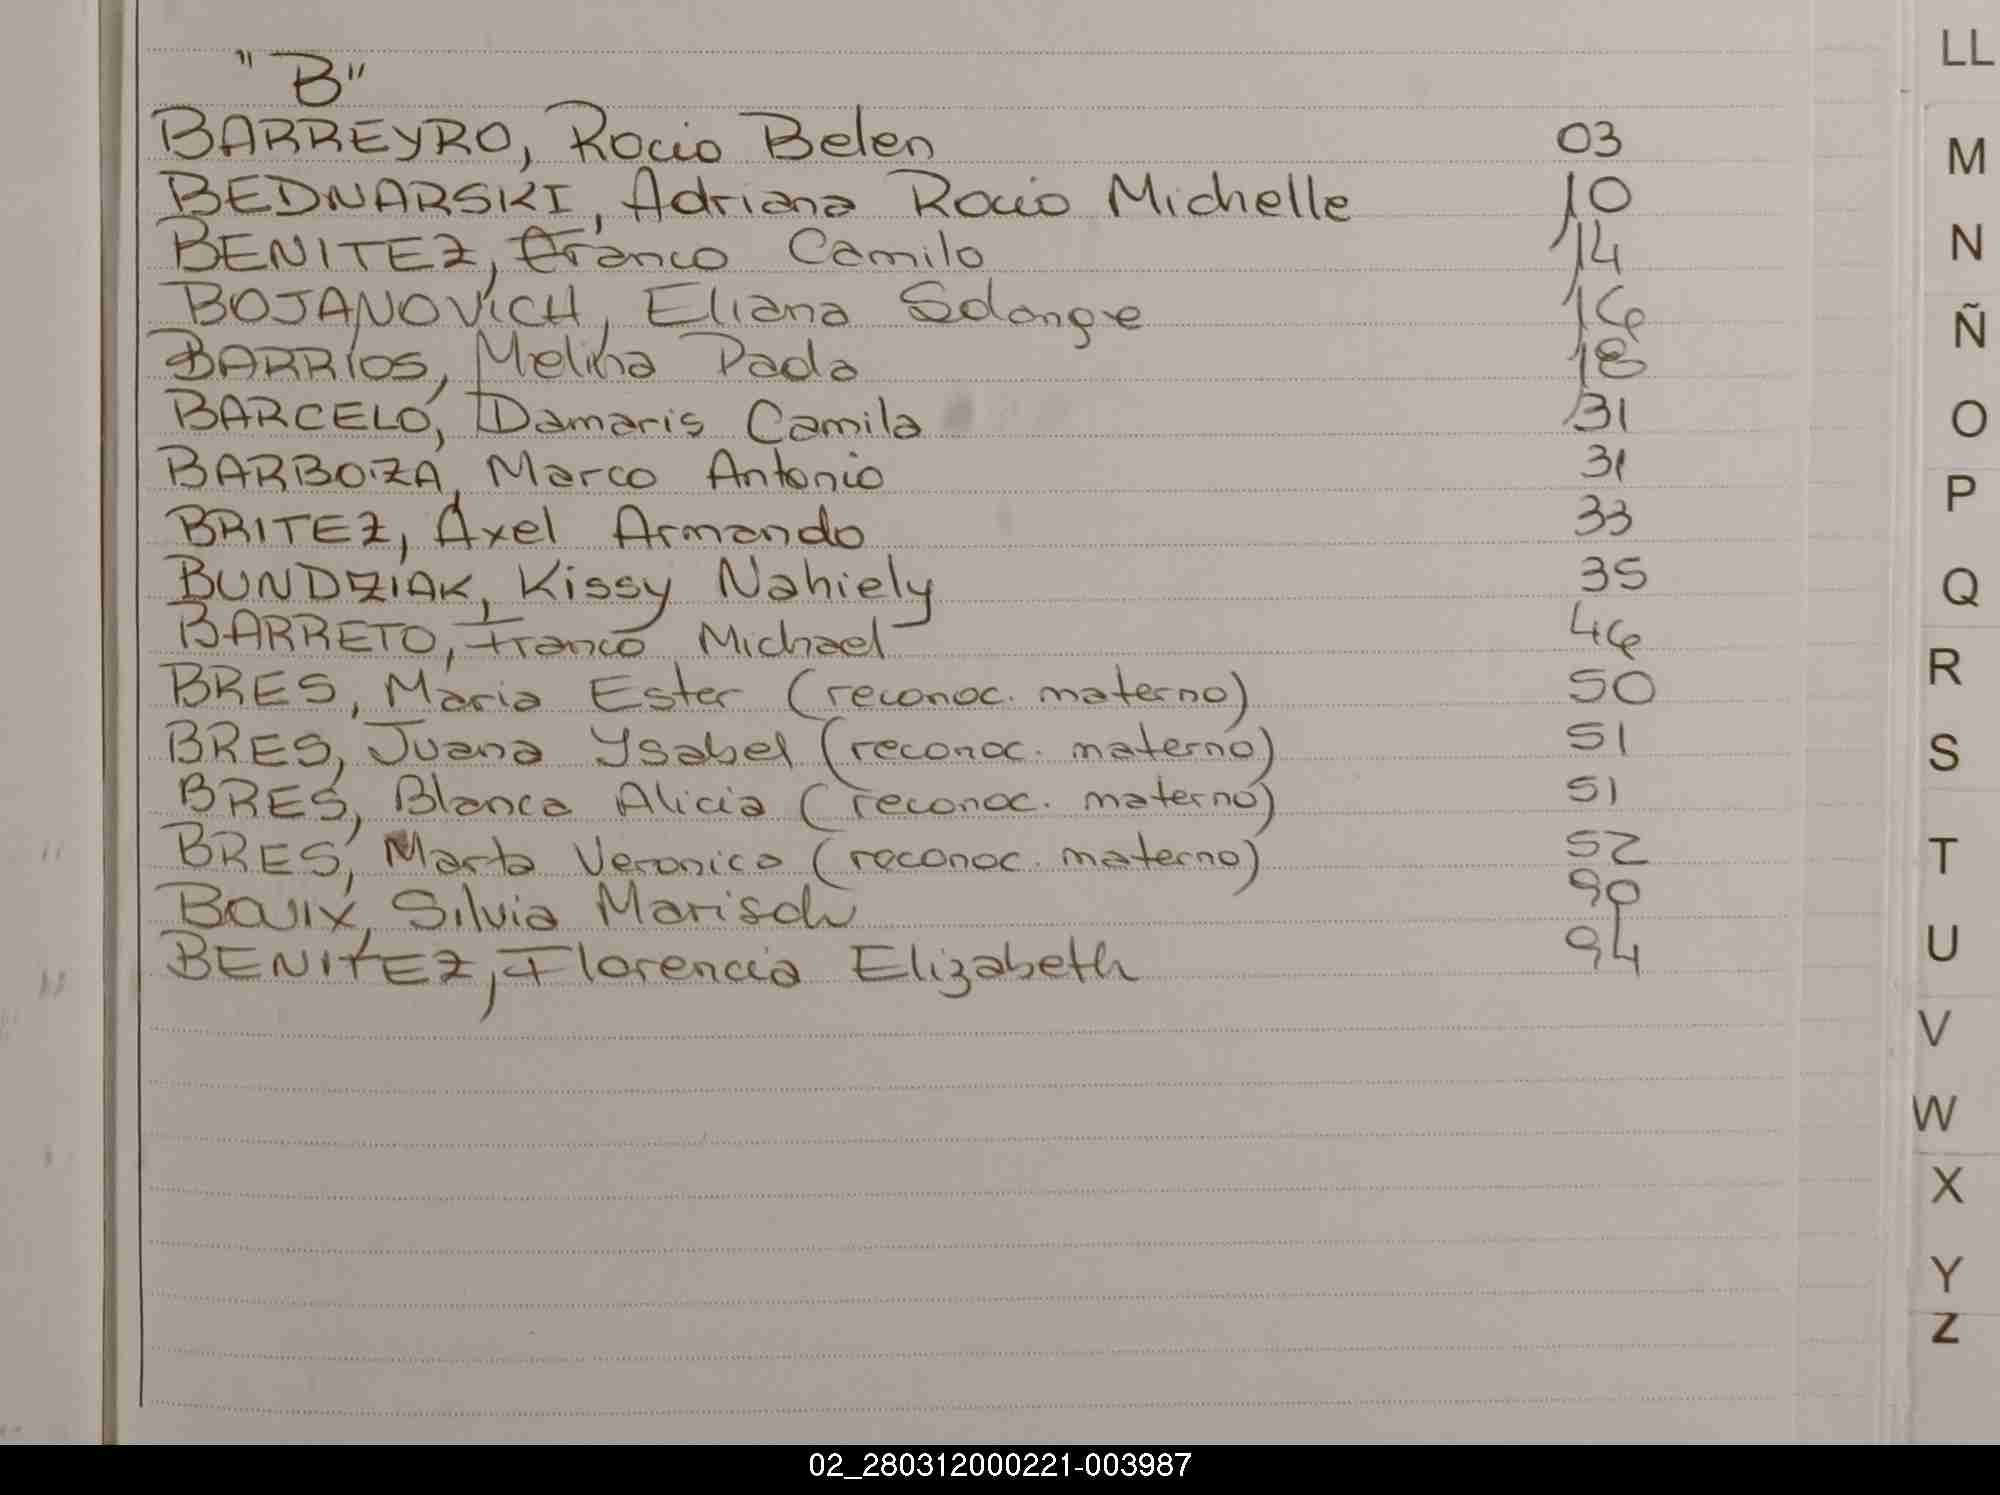 "B"
BARREYRO, Rocio Belen 03
BEDNARSKI, Adriana Rocio Michelle 10
BENITEZ, Franco Camilo 14
BOJANOVICH, Eliana Solange 16
BARRIOS, Melina Paola 18
BARCELO, Damaris Camila 31
BARBOZA, Marco Antonio 31
BRITEZ, Axel Armando 33
BUNDZIAK, Kissy Nahiely 35
BARRETO, Franco Michael 46
BRES, Maria Ester (reconoc. materno) 50
BRES, Juana Ysabel (reconoc. materno) 51
BRES, Blanca Alicia (reconoc. materno) 51
BRES, Marta Veronica (reconoc. materno) 52
BOUIX, Silvia Marisol 90
BENITEZ, Florencia Elizabeth 94
LL
M
N
Ñ
O
P
Q
R
S
T
U
V
W
X
Y
Z
02_280312000221-003987